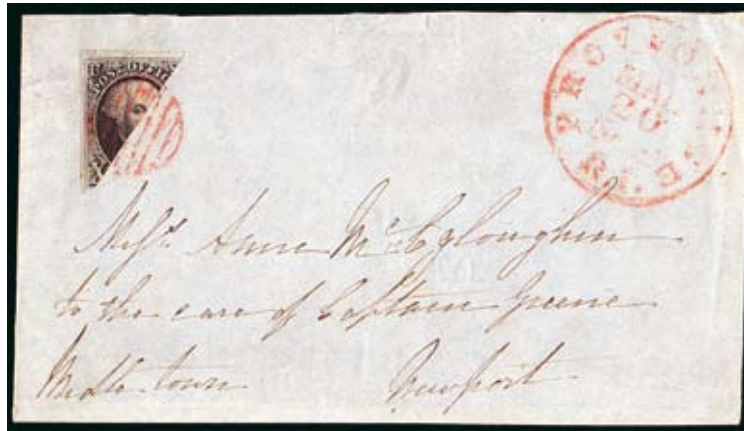 POST OFFICE
PROVIDENCE
MAR
20
R.I.
Miss Anne McGloughen
to the care of Captain Greene
Middletown Newport